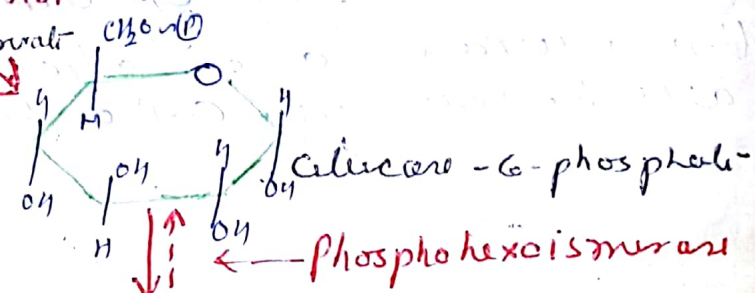 CH2O~(P)
O
H
H
H
OH
H
OH
OH
H
OH
Glucose - 6 - phosphate
H
Phosphohexoisomerase